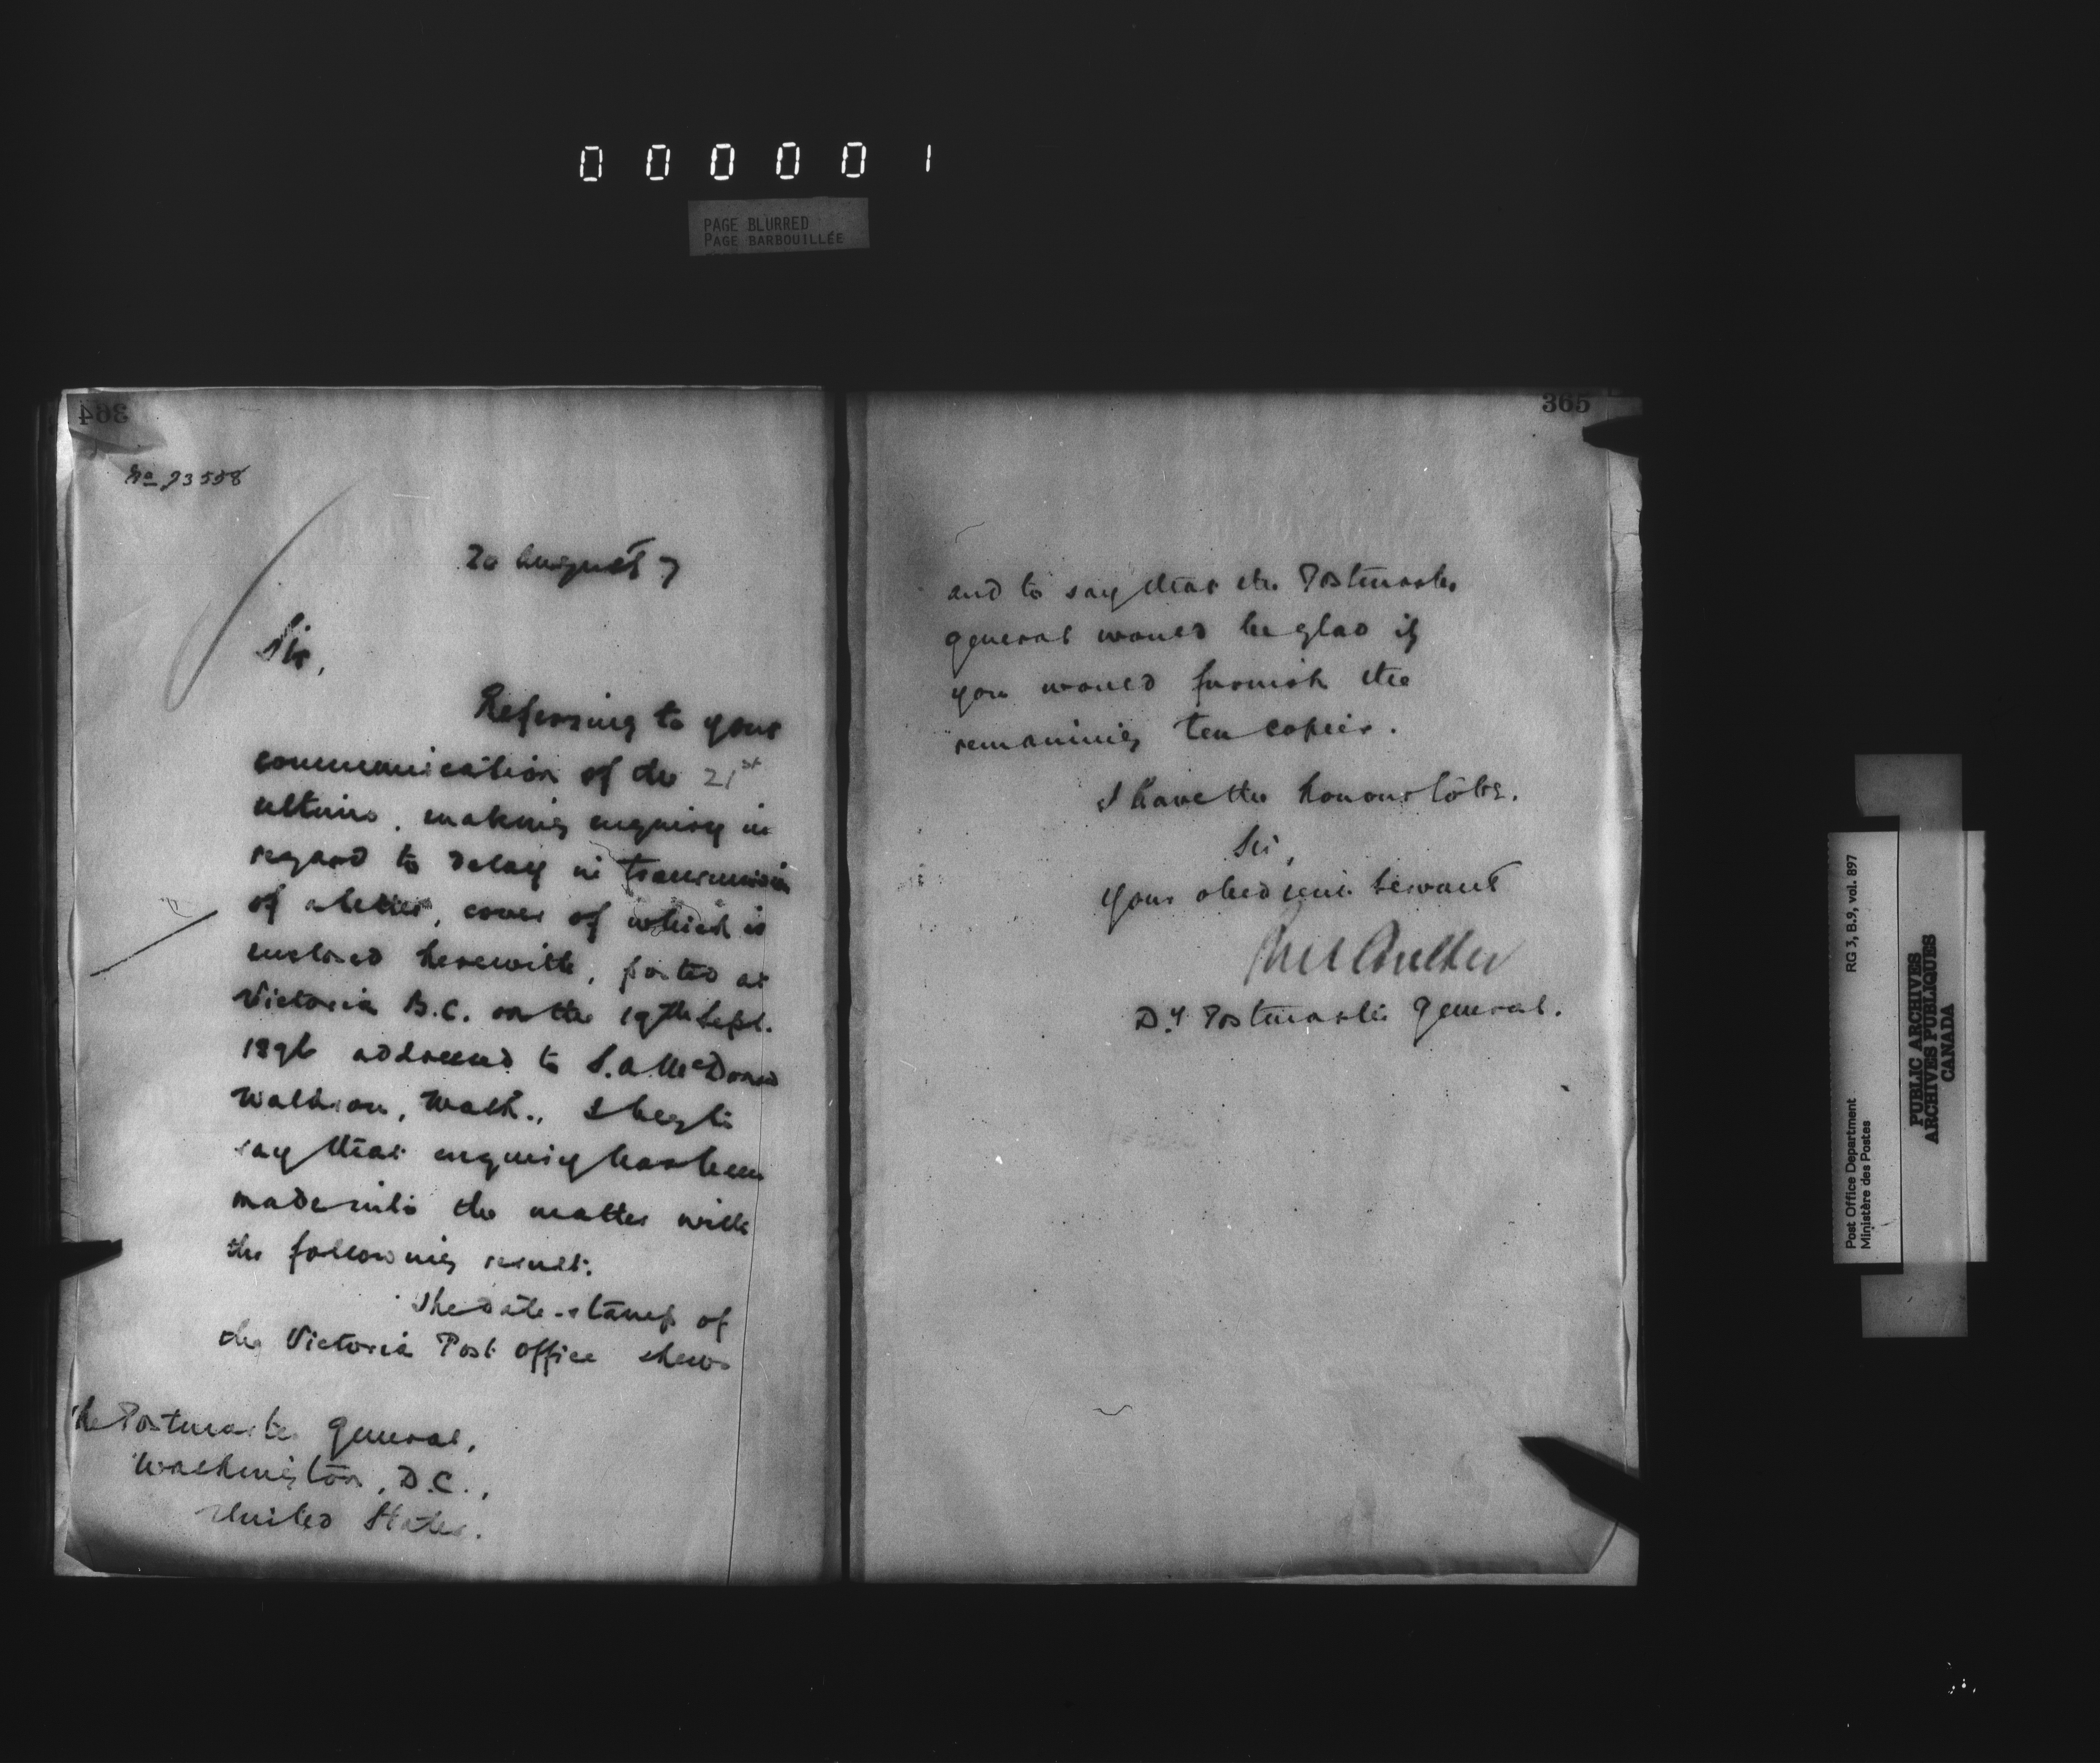 000001
PAGE BLURRED
PAGE BARBOUILLÉE
364
No 93558
20 August 7
Sir,
Referring to your
communication of the 21st
ultimo, making enquiry in
regard to delay in transmission
of a letter, cover of which is
enclosed herewith, posted at
Victoria B.C. on the 19th Sept.
1896 addressed to S.A. McDonald
Waldron, Wash., I beg to
say that enquiry has been
made into the matter with
the following result:
The date-stamp of
the Victoria Post Office shews
The Postmaster General,
Washington, D.C.,
United States.
365
and to say that the Postmaster
General would be glad if
you would furnish the
remaining ten copies.
I have the honour to be,
Sir,
Your obedient servant
Dy. Postmaster General.
Post Office Department
Ministère des Postes
RG 3, B.9, vol. 897
PUBLIC ARCHIVES
ARCHIVES PUBLIQUES
CANADA